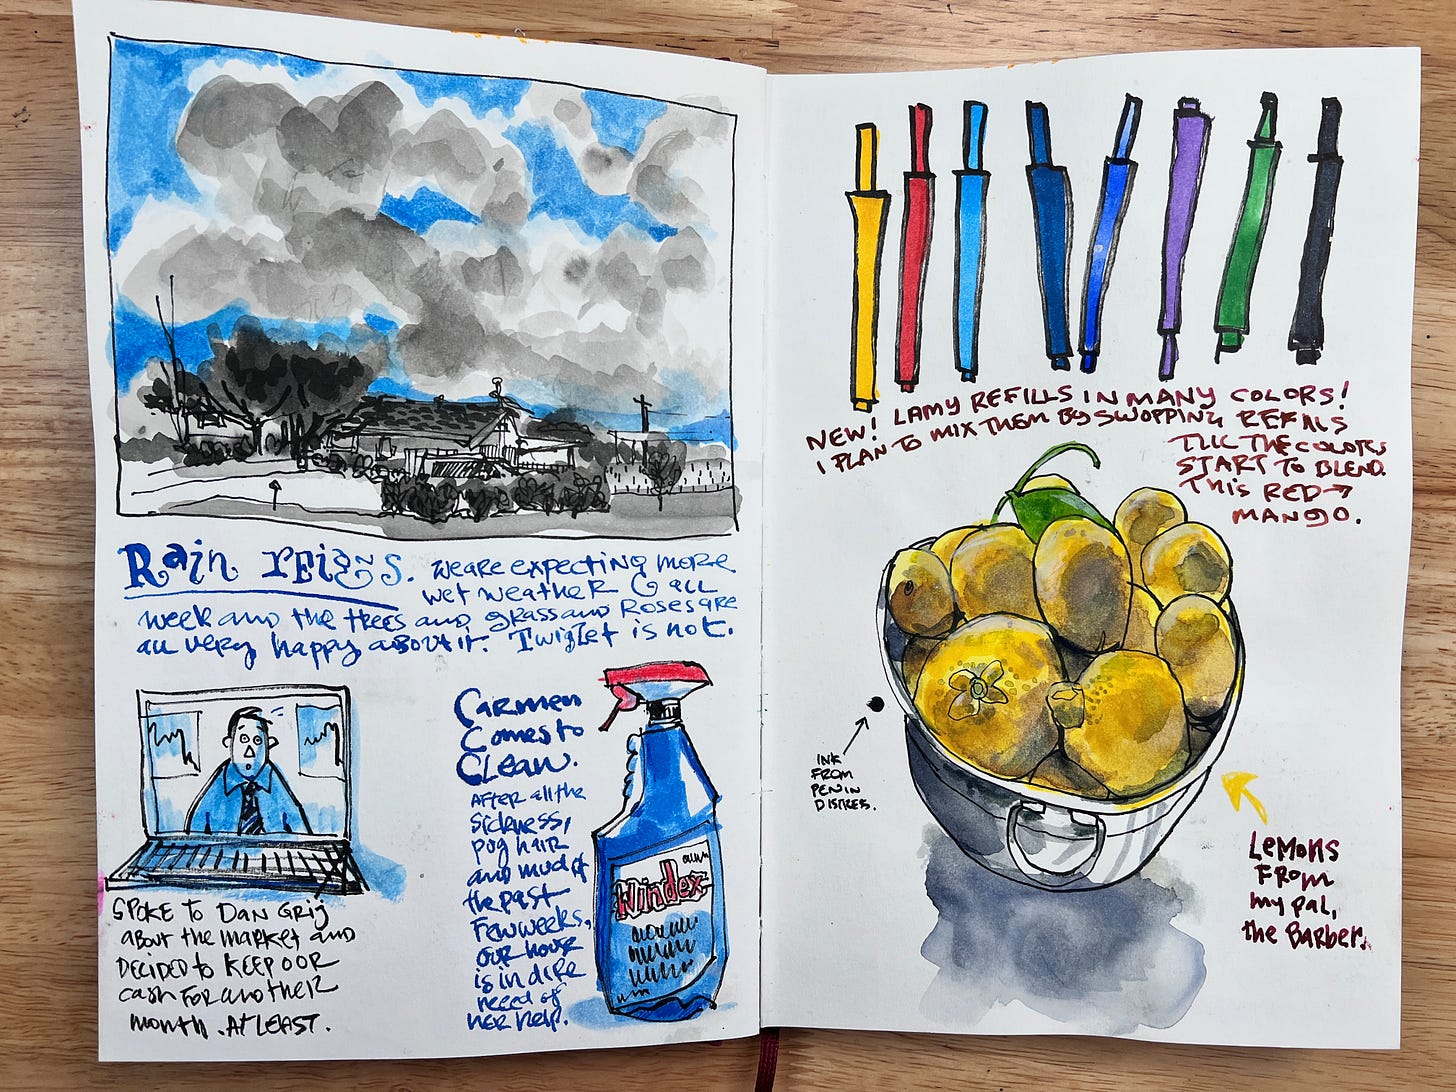 Rain reigns. We are expecting more
wet weather all
week and the trees and grass and Roses are
all very happy about it. Twiglet is not.
Spoke to Dan Grij
about the market and
decided to keep our
cash for another
month. At least.
Carmen
Comes to
Clean.
After all the
sickness,
pug hair
and mud of
the past
few weeks,
our house
is in dire
need of
her help.
Windex
New! Lamy refills in many colors!
I plan to mix them by swopping refills
till the colors
start to blend.
This red →
mango.
Ink
from
pen in
distress.
Lemons
from
my pal,
the Barber.